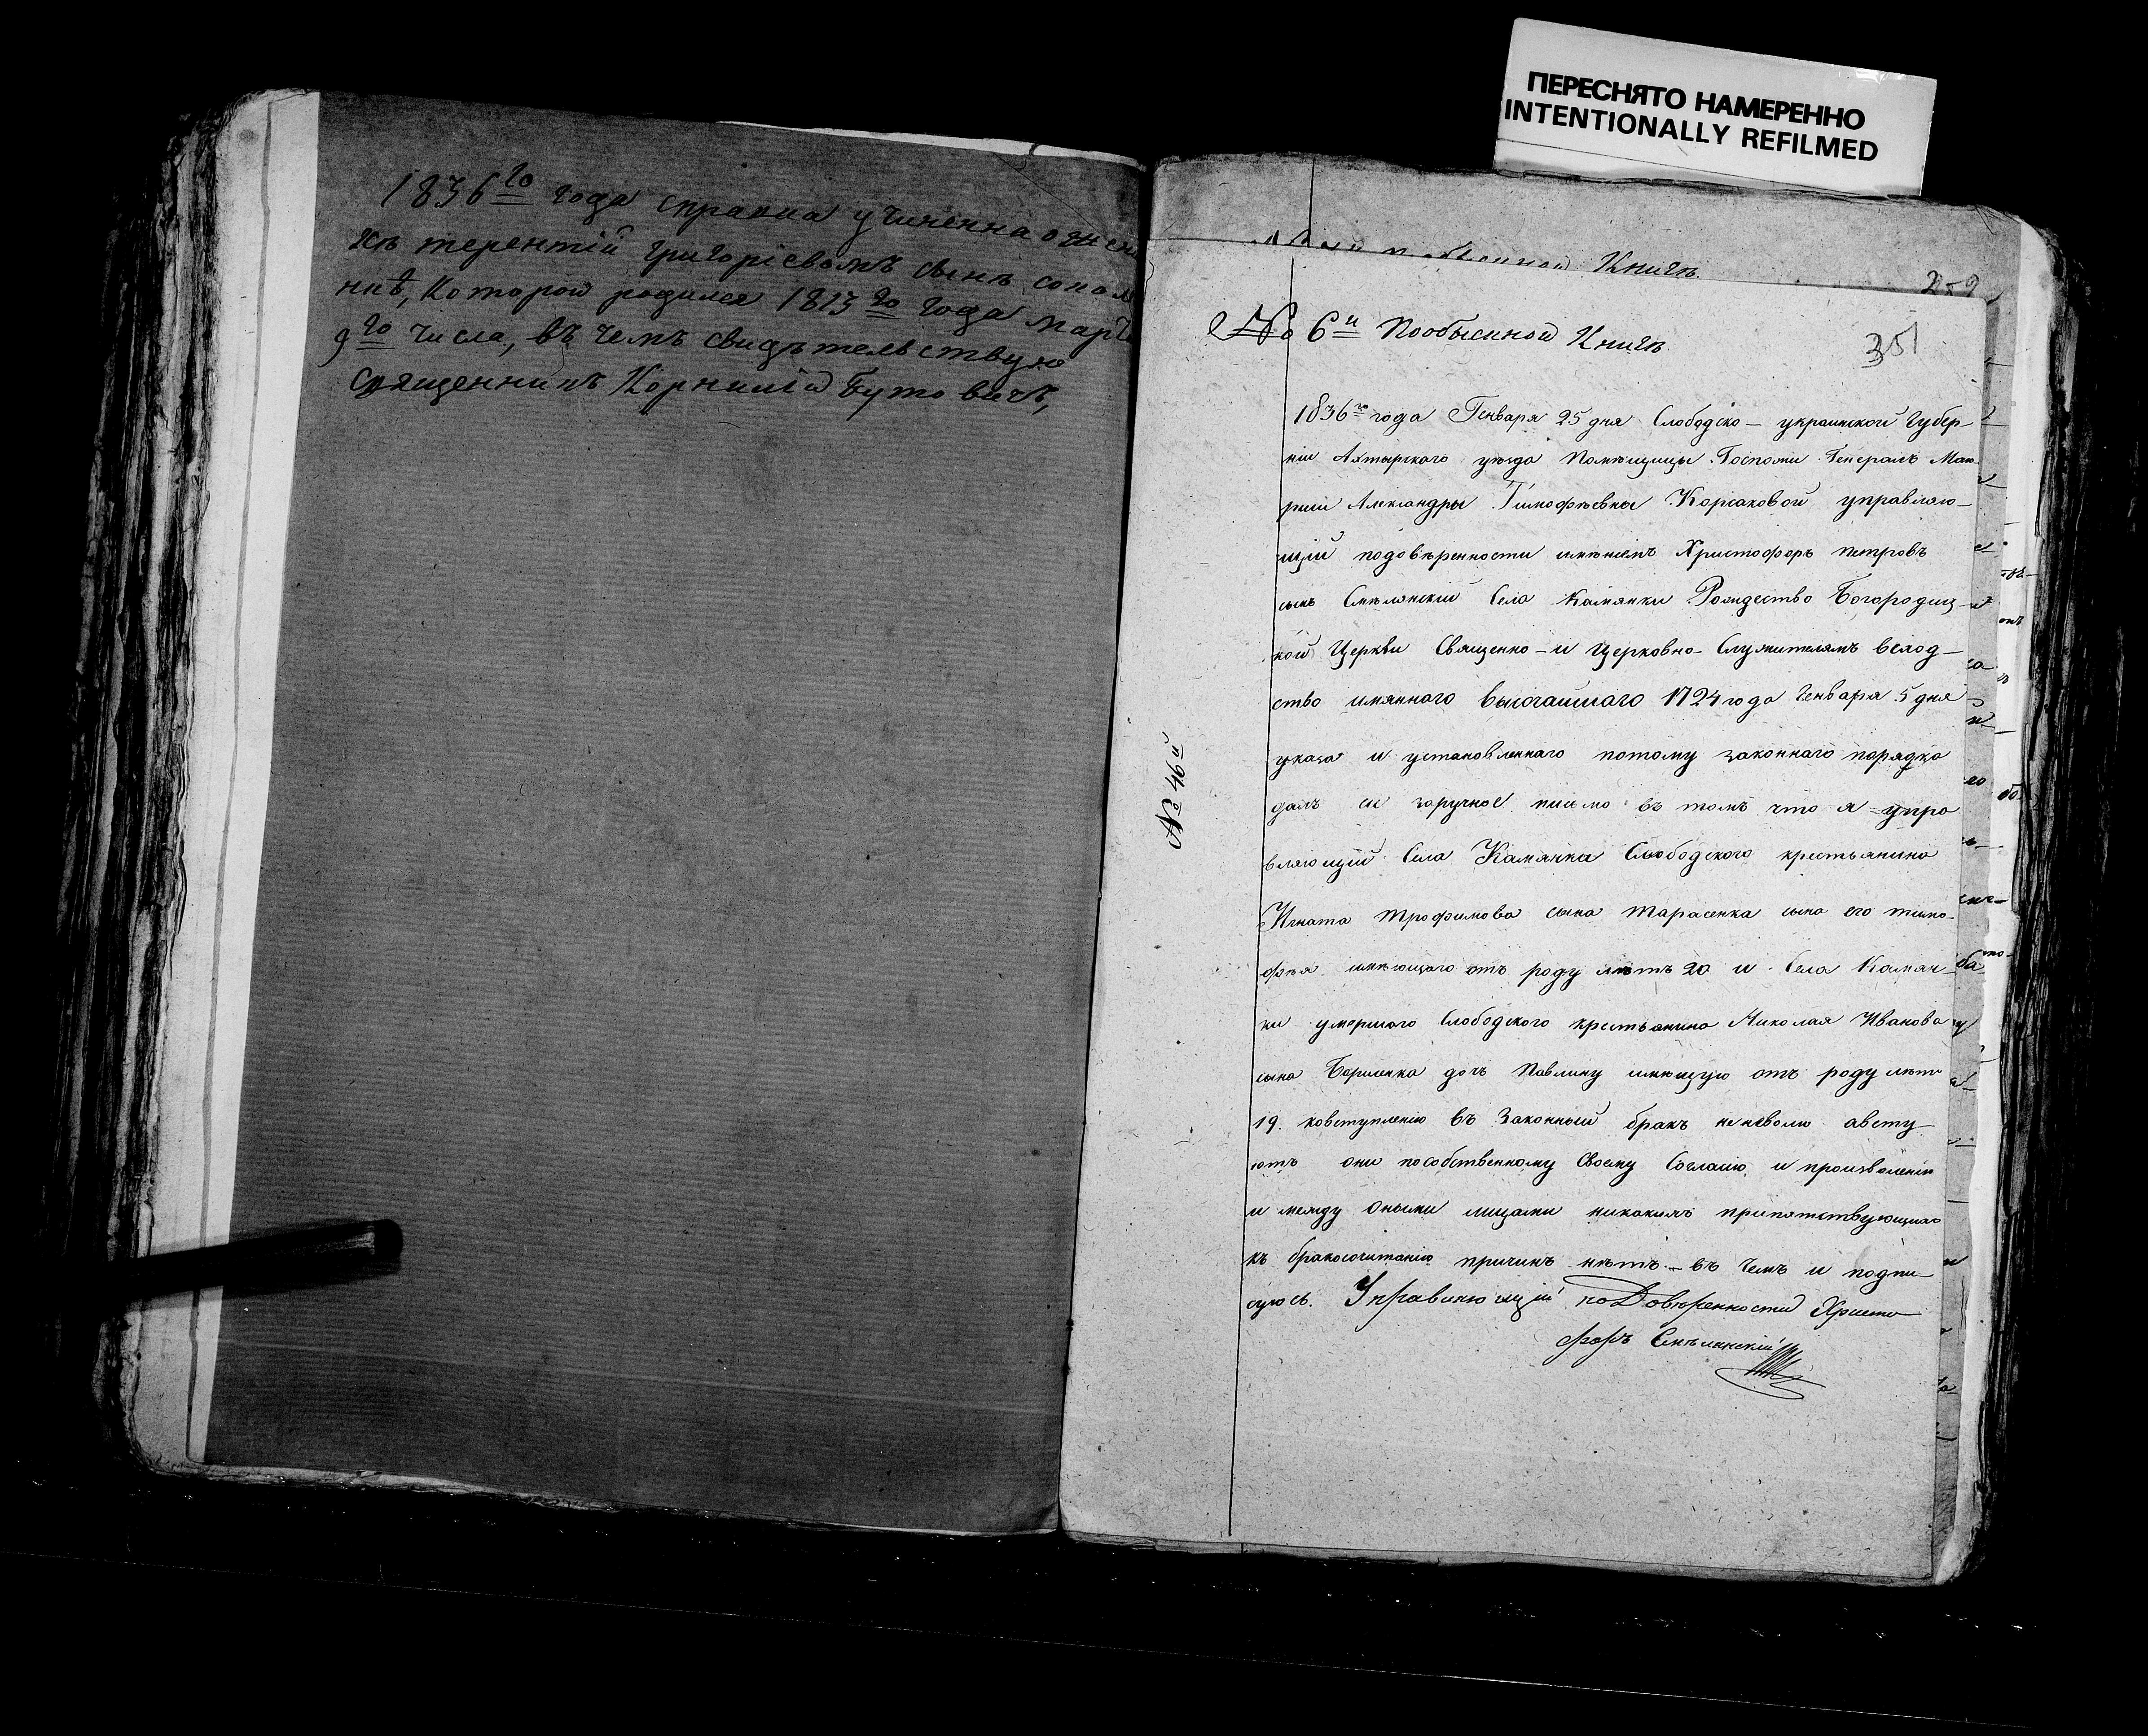 ПЕРЕСНЯТО НАМЕРЕННО
INTENTIONALLY REFILMED
1836го года справка учиненна о
хъ терентій григоріевомъ сынъ
никѣ, которой родился 1813го года март
9го числа, въ чемъ свидѣтельствую
Священникъ Корнилій Бутовичъ,
Книгѣ
№ 6й Пообыскной Книгѣ
351
1836го года Генваря 25 дня Слободско - украинской Губер-
ніи Ахтырского уѣзда Помѣщицы Госпожи Генералъ Маіо-
рши Александры Тимофѣевны Корсаковой управляю-
щій подовѣренности имѣніемъ Христофоръ петровъ
сынъ Смѣлянскій Села Камянки Рождество Богородиц-
кой Церкви Священно - и Церковно - Служителямъ вслод-
ство имянного высочайшаго 1724 года Генваря 5 дня
указа и установленнаго потому законнаго порядка
далъ сіе заручное письмо въ томъ что я упра
вляющій Села Камянки Слободского крестьянина
Игната Трофимова сына Тарасенка сына его тимо-
фѣя имѣющаго отъ роду лѣтъ 20 и Села Камян-
ки умершого Слободского крестьянина Николая Иванова
сына дочь Павлину имѣющую отъ роду лѣтъ
19. ковступленію въ Законный бракъ неневолю австу
ютъ они пособственному Своему Согласію, и произволенію
и между оными лицами никакихъ припятствующихъ
къ бракосочитанію причинъ нѣтъ - въ чемъ и подпи-
суюсь. Управляющій по Довѣренности Христо
форъ Смѣлянскій
№ 46й